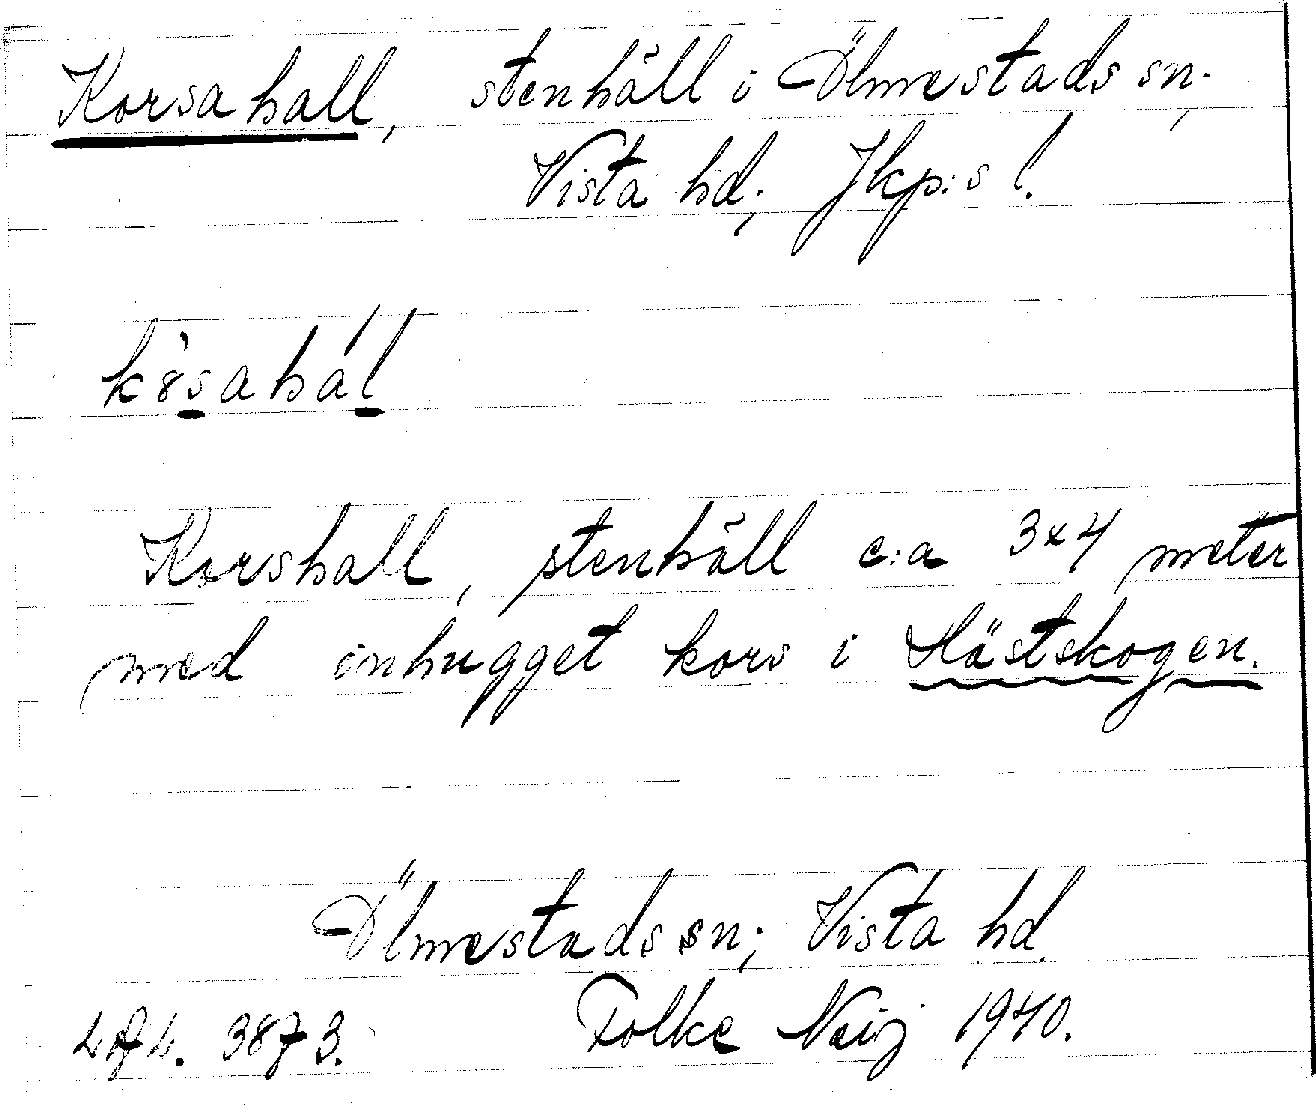 Korsahall, stenhäll i Ölmestads sn;
Vista hd; Jkp:s l.
Korshall, stenhäll c:a 3x4 meter
med inhugget kors i Hästskogen.
Ölmestads sn; Vista hd
3873. Folke 1940.